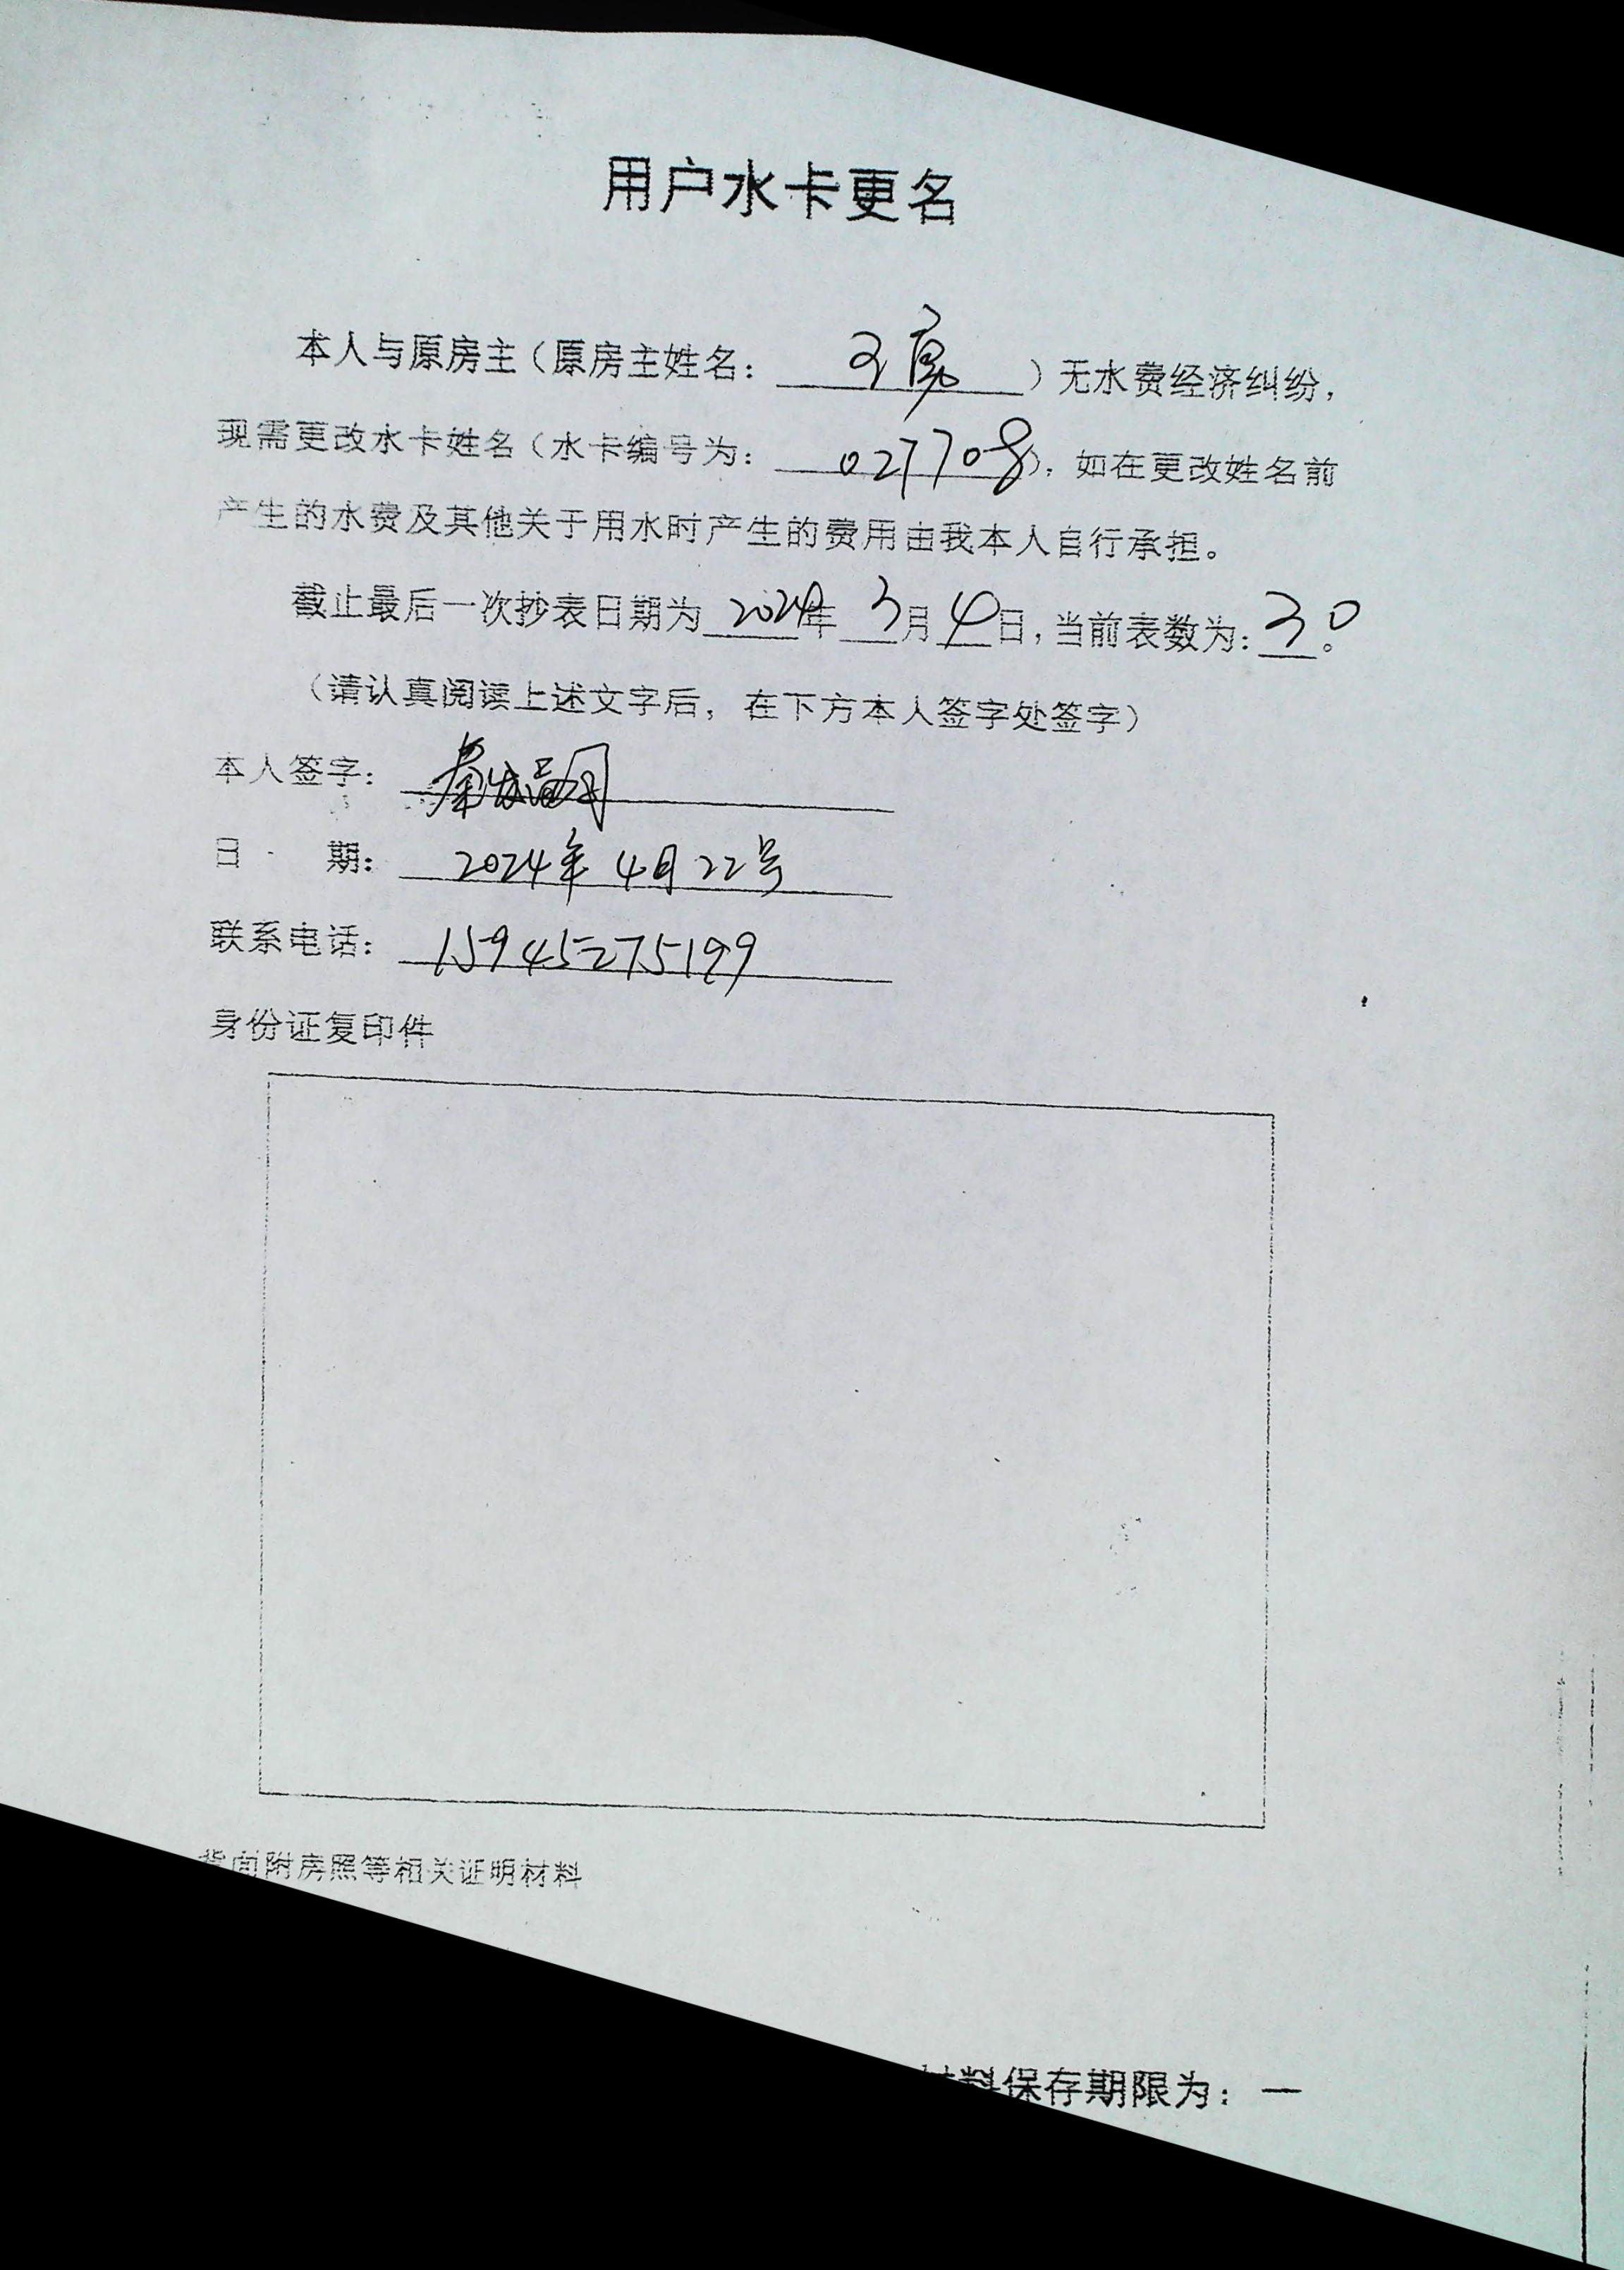 用户水卡更名
本人与原房主（原房主姓名：王亮）无水费经济纠纷，
现需更改水卡姓名（水卡编号为：027708），如在更改姓名前
产生的水费及其他关于用水时产生的费用由我本人自行承担。
截止最后一次抄表日期为2024年3月4日，当前表数为：30。
（请认真阅读上述文字后，在下方本人签字处签字）
本人签字：
日期：2024年4月22号
联系电话：15945275199
身份证复印件
背面附房照等相关证明材料
材料保存期限为：一